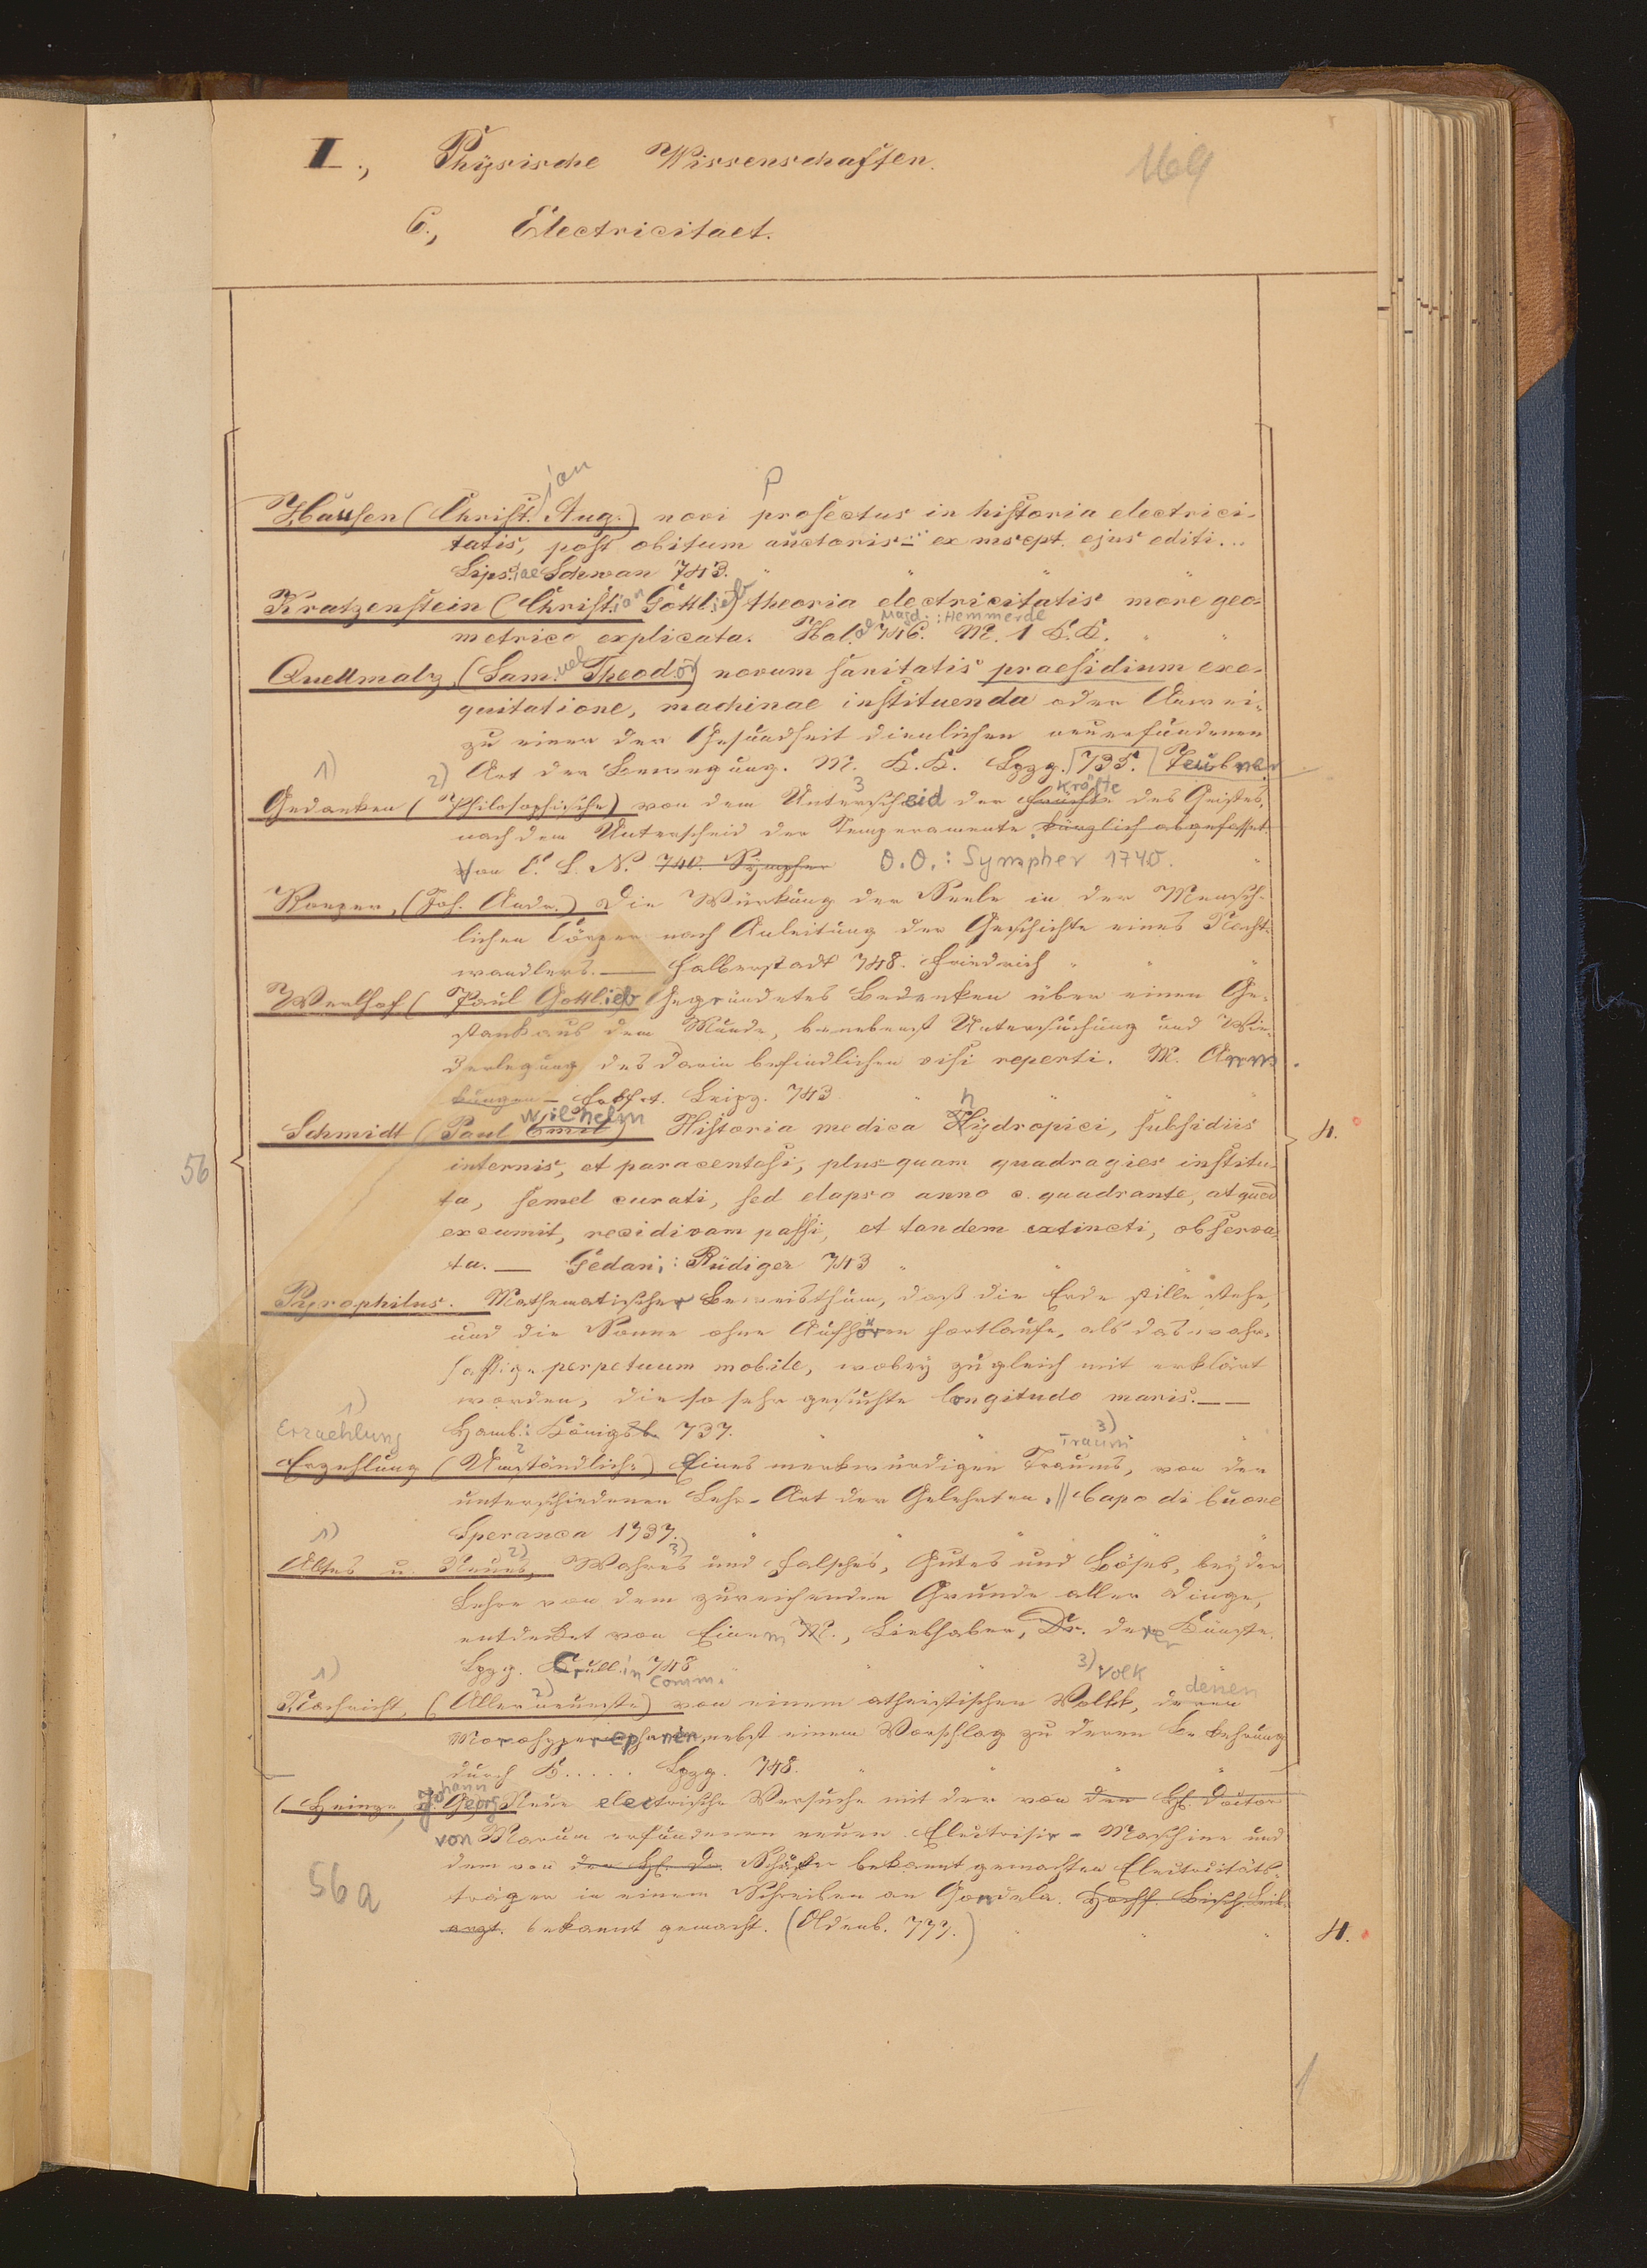 I., Physische Wissenschaften.
169
6., Electricitaet.
ian p
Hausen (Christ. Aug.) novi profectus in historia electrici-
tatis, post obitum auctoris ex mscpt. ejus editi...
Lips.iae Schwan 743.
Kratzenstein (Christian Gottlieb) theoria electricitatis more geo-
Magd.: Hemmerde
metrico explicata. Hal.ae 746. M. 1 K.K.
Quellmalz (Samuel Theodor) novum sanitatis praesidium exe-
quitatione, machinae instituenda oder Anwei-
zu einer der Gesundheit dienlichen neuerfundenen
Art der Bewegung. M. K.K. Lpzg. 735. Teubner
1) 2) 3 Kräfte
Gedanken (Philosophische) von dem Unterscheid der des Geistes,
nach dem Unterscheid der Temperamente kürzlich abgefasset
Von C. L. N. 740. Sympher O.O.: Sympher 1740.
Roeper, (Joh. Andr.) Die Würkung der Seele in der Mensch-
lichen Cörper nach Anleitung der Geschichte eines Nacht-
wandlers. — Halberstadt 748. Friedrich
Werlhof (Paul Gottlieb Gegründetes Bedenken über einen Ge-
stank aus dem Munde, benebenst Untersuchung und Wie-
derlegung des darin befindlichen visi reperti. M. Anm
kungen — Leipz. 743
Wilhelm h
Schmidt (Paul Emil) Historia medica Hydropici, subsidiis
56
4.
internis, et paracentesi, plus quam quadragies institu-
ta, semel curati, sed elapso anno c. quadrante, at quod
excurrit, recidivam passi, et tandem extincti, observa-
ta. — Gedani: Rüdiger 743
Pyrophilus. Mathematischer Beweisthum, daß die Erde stille stehe,
und die Sonne ohne Aufhören fortlaufe, als das wahr-
hafftige perpetuum mobile, wobey zugleich mit erklärt
worden, die so sehr gesuchte longitudo maris. — —
1)
Erzaehlung Hamb.: Königsb. 737.
2 3) Traum
Erzehlung (Umständliche) Eines merkwürdigen Traums, von der
unterschiedenen Lehr-Art der Gelehrten, || Capo di buone
Speranca 1737.
1) 2) 3)
Altes u. Neues, Wahres und Falsches, Gutes und Böses, bey der
Lehre von dem zureichenden Grunde aller Dinge,
entdecket von Einem M., Liebhaber, Dr. derer Künste.
Lpzg. Crull. in Comm. 748
1) 2) 3) Volk denen
Nachricht, (Allerneueste) von einem atheistischen Volkk, deren
nebst einem Vorschlag zu deren Bekehrung
durch K..... Lpzg. 748.
(Heinze, Johann Georg Neue electrische Versuche mit der von dem H. Doctor
von Marum erfundenen neuen Electrisir-Maschine und
dem von dem H. Dr. Schäffer bekannt gemachten Electricitäts-
56a
träger in einem Schreiben an Gondela. Hochf. Bisch. Leib-
arzt. bekannt gemacht. (Oldenb. 777.)
4.
1